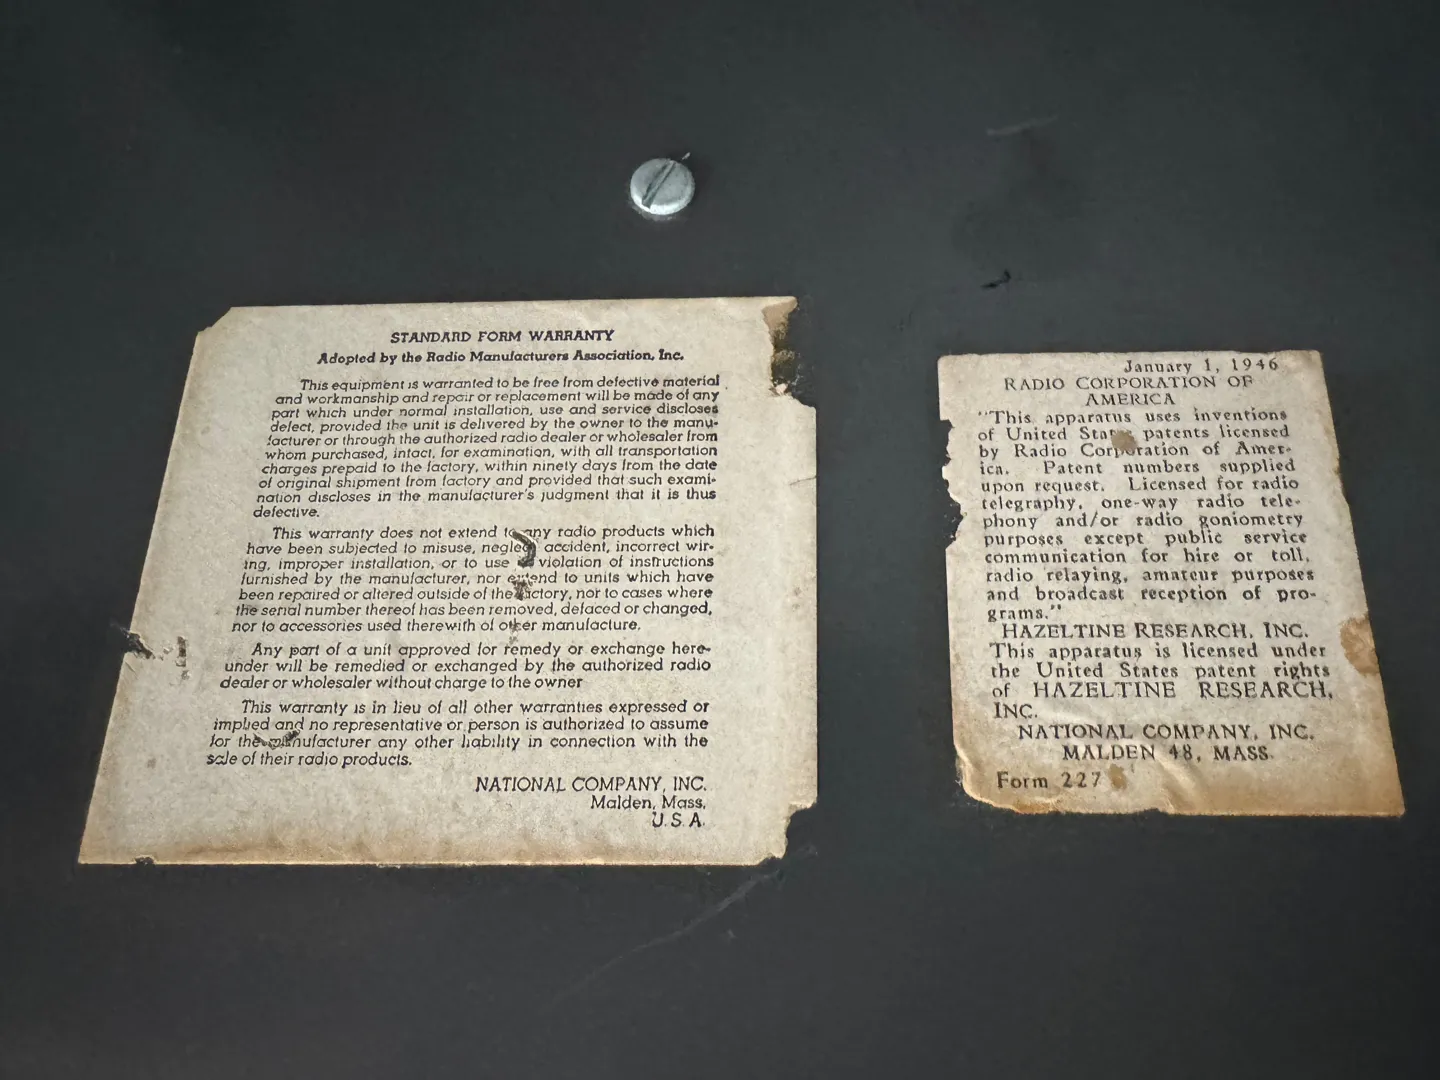 STANDARD FORM WARRANTY
Adopted by the Radio Manufacturers Association, Inc.
This equipment is warranted to be free from defective material
and workmanship and repair or replacement will be made of any
part which under normal installation, use and service discloses
defect, provided the unit is delivered by the owner to the manu-
facturer or through the authorized radio dealer or wholesaler from
whom purchased, intact, for examination, with all transportation
charges prepaid to the factory, within ninety days from the date
of original shipment from factory and provided that such exami-
nation discloses in the manufacturer's judgment that it is thus
defective.
This warranty does not extend to any radio products which
have been subjected to misuse, neglect accident, incorrect wir-
ing, improper installation, or to use violation of instructions
furnished by the manufacturer, nor extend to units which have
been repaired or altered outside of the factory, nor to cases where
the serial number thereof has been removed, defaced or changed,
nor to accessories used therewith of other manufacture.
Any part of a unit approved for remedy or exchange here-
under will be remedied or exchanged by the authorized radio
dealer or wholesaler without charge to the owner
This warranty is in lieu of all other warranties expressed or
implied and no representative or person is authorized to assume
for the manufacturer any other liability in connection with the
sale of their radio products.
NATIONAL COMPANY, INC.
Malden, Mass.
U. S. A.
January 1, 1946
RADIO CORPORATION OF
AMERICA
"This apparatus uses inventions
of United States patents licensed
by Radio Corporation of Amer-
ica. Patent numbers supplied
upon request. Licensed for radio
telegraphy, one-way radio tele-
phony and/or radio goniometry
purposes except public service
communication for hire or toll,
radio relaying, amateur purposes
and broadcast reception of pro-
grams."
HAZELTINE RESEARCH, INC.
This apparatus is licensed under
the United States patent rights
of HAZELTINE RESEARCH,
INC.
NATIONAL COMPANY, INC.
MALDEN 48, MASS.
Form 227